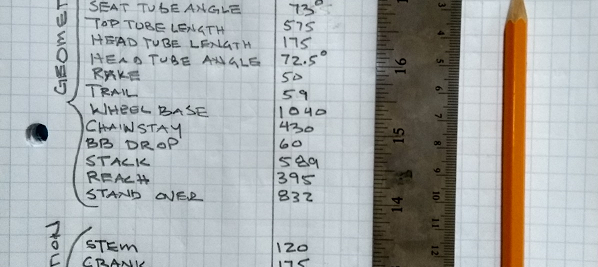 GEOMET
SEAT TUBE ANGLE 73°
TOP TUBE LENGTH 575
HEAD TUBE LENGTH 175
HEAD TUBE ANGLE 72.5°
RAKE 50
TRAIL 59
WHEEL BASE 1040
CHAINSTAY 430
BB DROP 60
STACK 589
REACH 395
STAND OVER 832
TION
STEM 120
CRANK 175
3
4
5
6
7
8
9
10
11
12
16
15
14